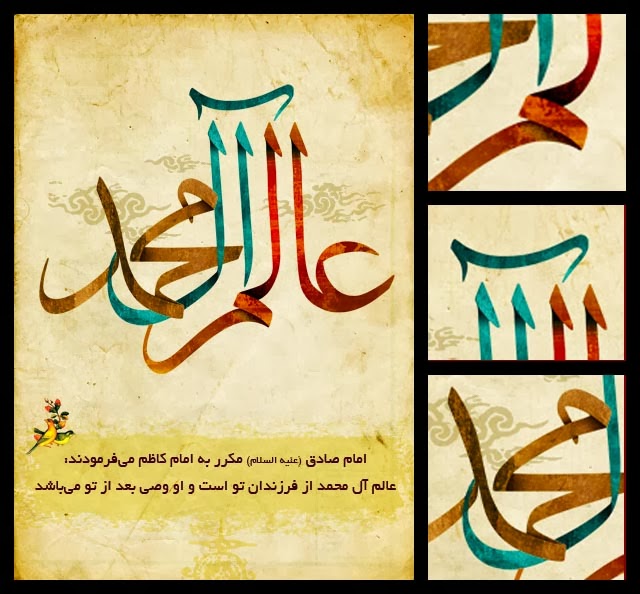 عالم آل محمد
امام صادق (علیه السلام) مکرر به امام کاظم می‌فرمودند:
عالم آل محمد از فرزندان تو است و او وصی بعد از تو می‌باشد